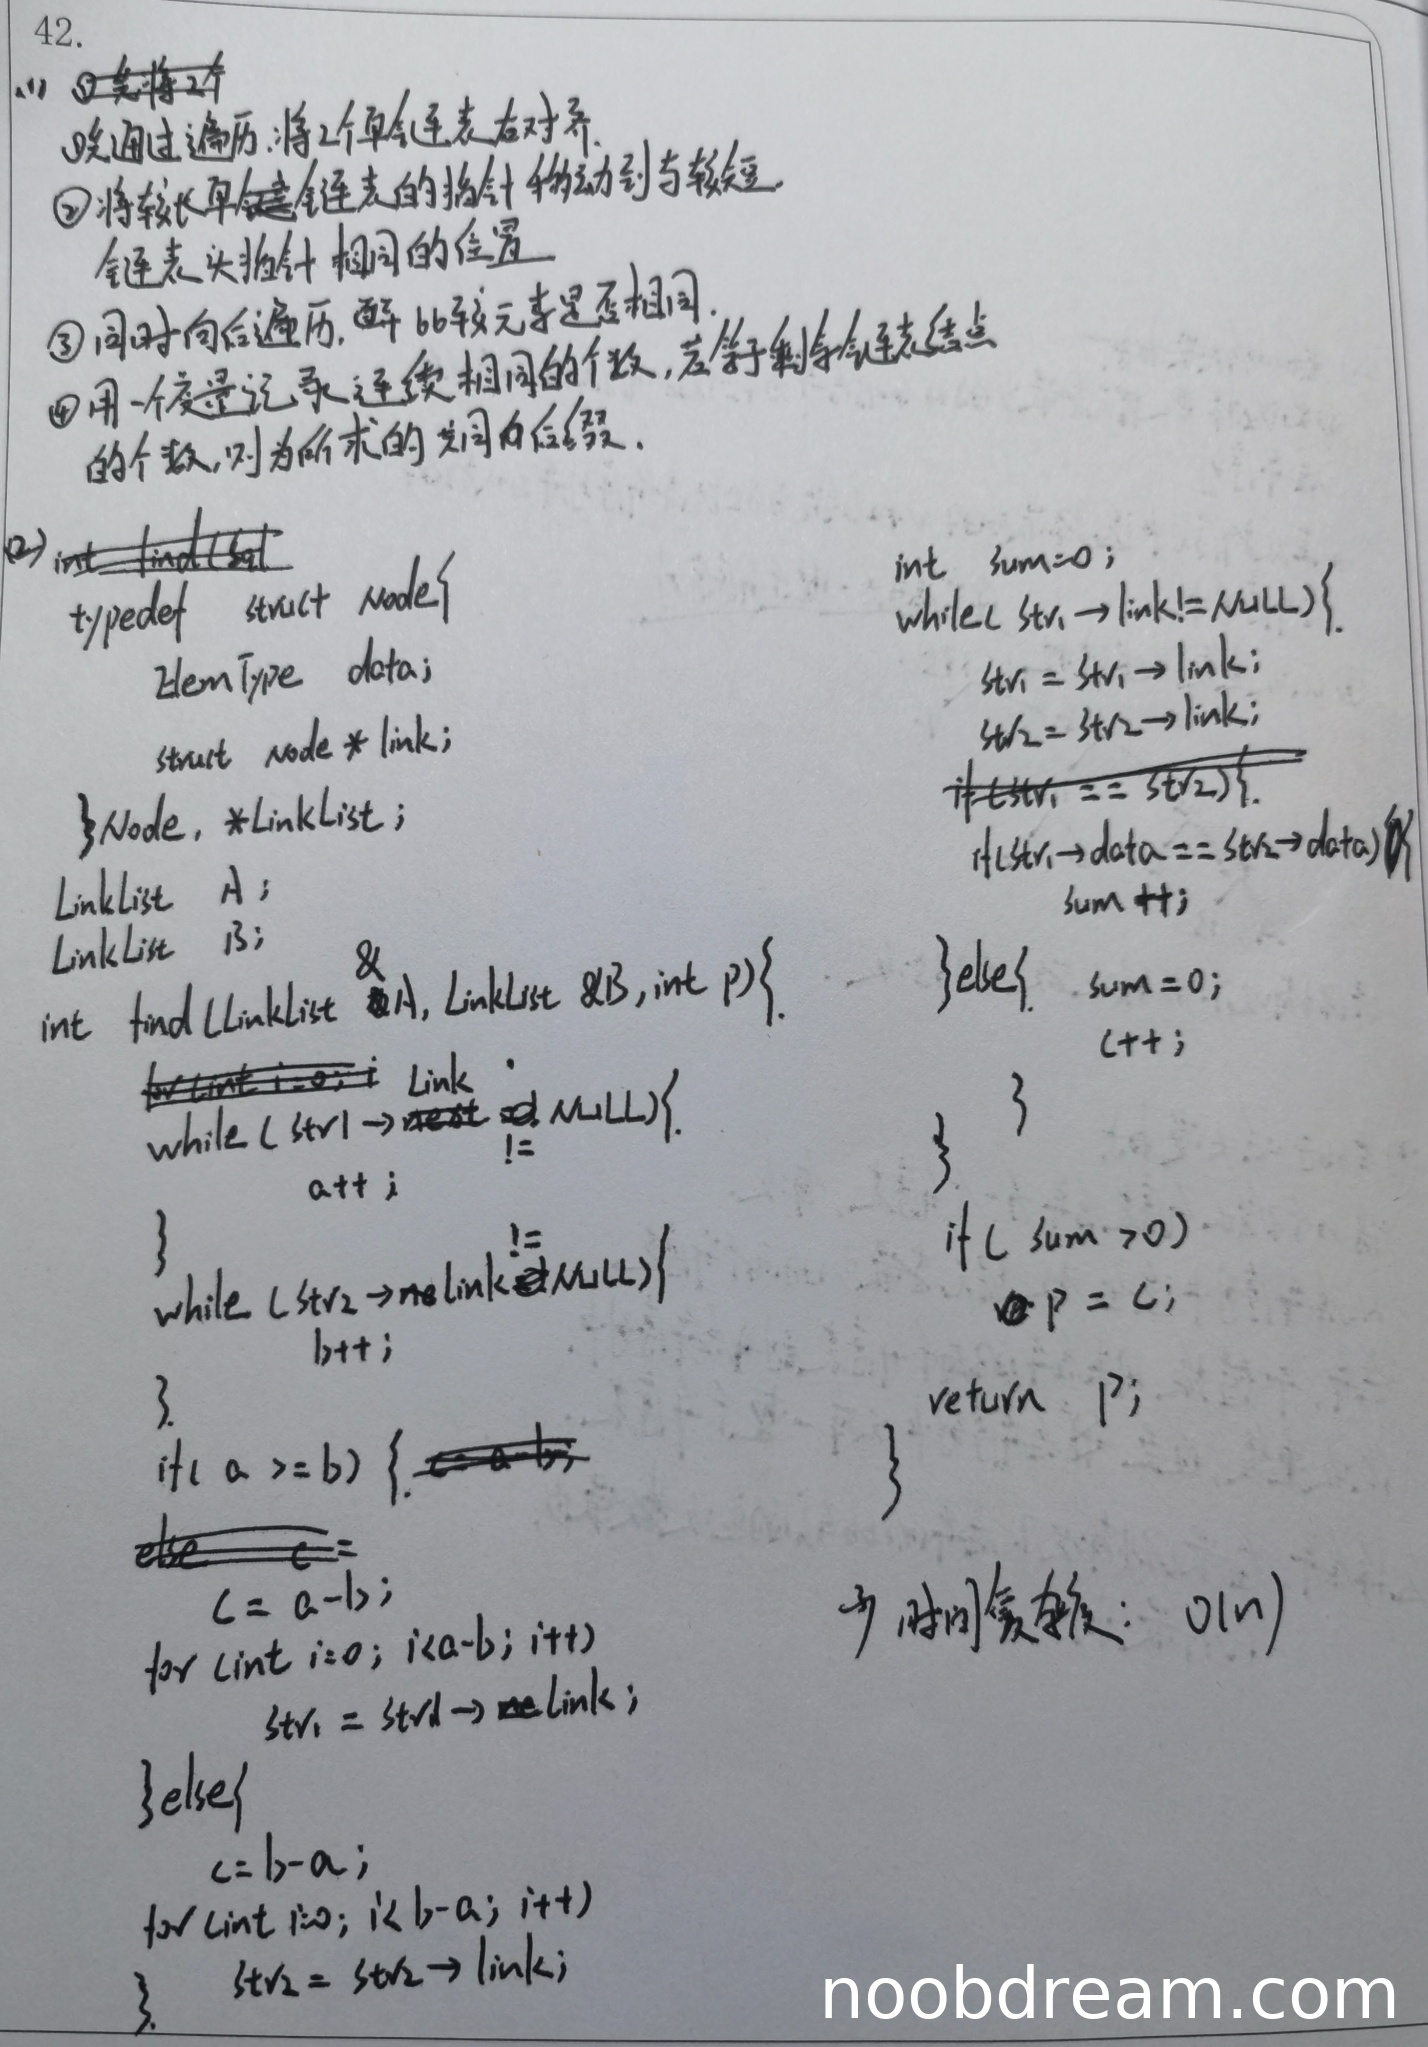 42.
(1) ①先将2个
①先通过遍历,将2个单链表右对齐.
②将较长单链表的指针移动到与较短
链表头指针相同的位置
③同时向后遍历, 比较元素是否相同.
④用一个变量记录连续相同的个数,若等于剩余链表结点
的个数,则为所求的共同后缀.
(2) int find(Sql
typedef struct Node{
ElemType data;
struct Node * link;
}Node, *LinkList;
LinkList A;
LinkList B;
int find (LinkList &A, LinkList &B, int p){
for (int i=0; i
while (str1→link != NULL){
a++;
}
while (str2→link != NULL){
b++;
}
if( a >= b) { c= a-b;
else c =
c = a-b;
for (int i=0; i<a-b; i++)
str1 = str1→link;
}else{
c=b-a;
for (int i=0; i<b-a; i++)
str2 = str2→link;
}
int sum=0;
while( str1→link!=NULL){
str1 = str1→link;
str2 = str2→link;
if (str1 == str2){
if(str1→data==str2→data){
sum++;
}else{ sum=0;
c++;
}
}
if( sum >0)
p = c;
return p;
}
3) 时间复杂度: O(n)
noobdream.com